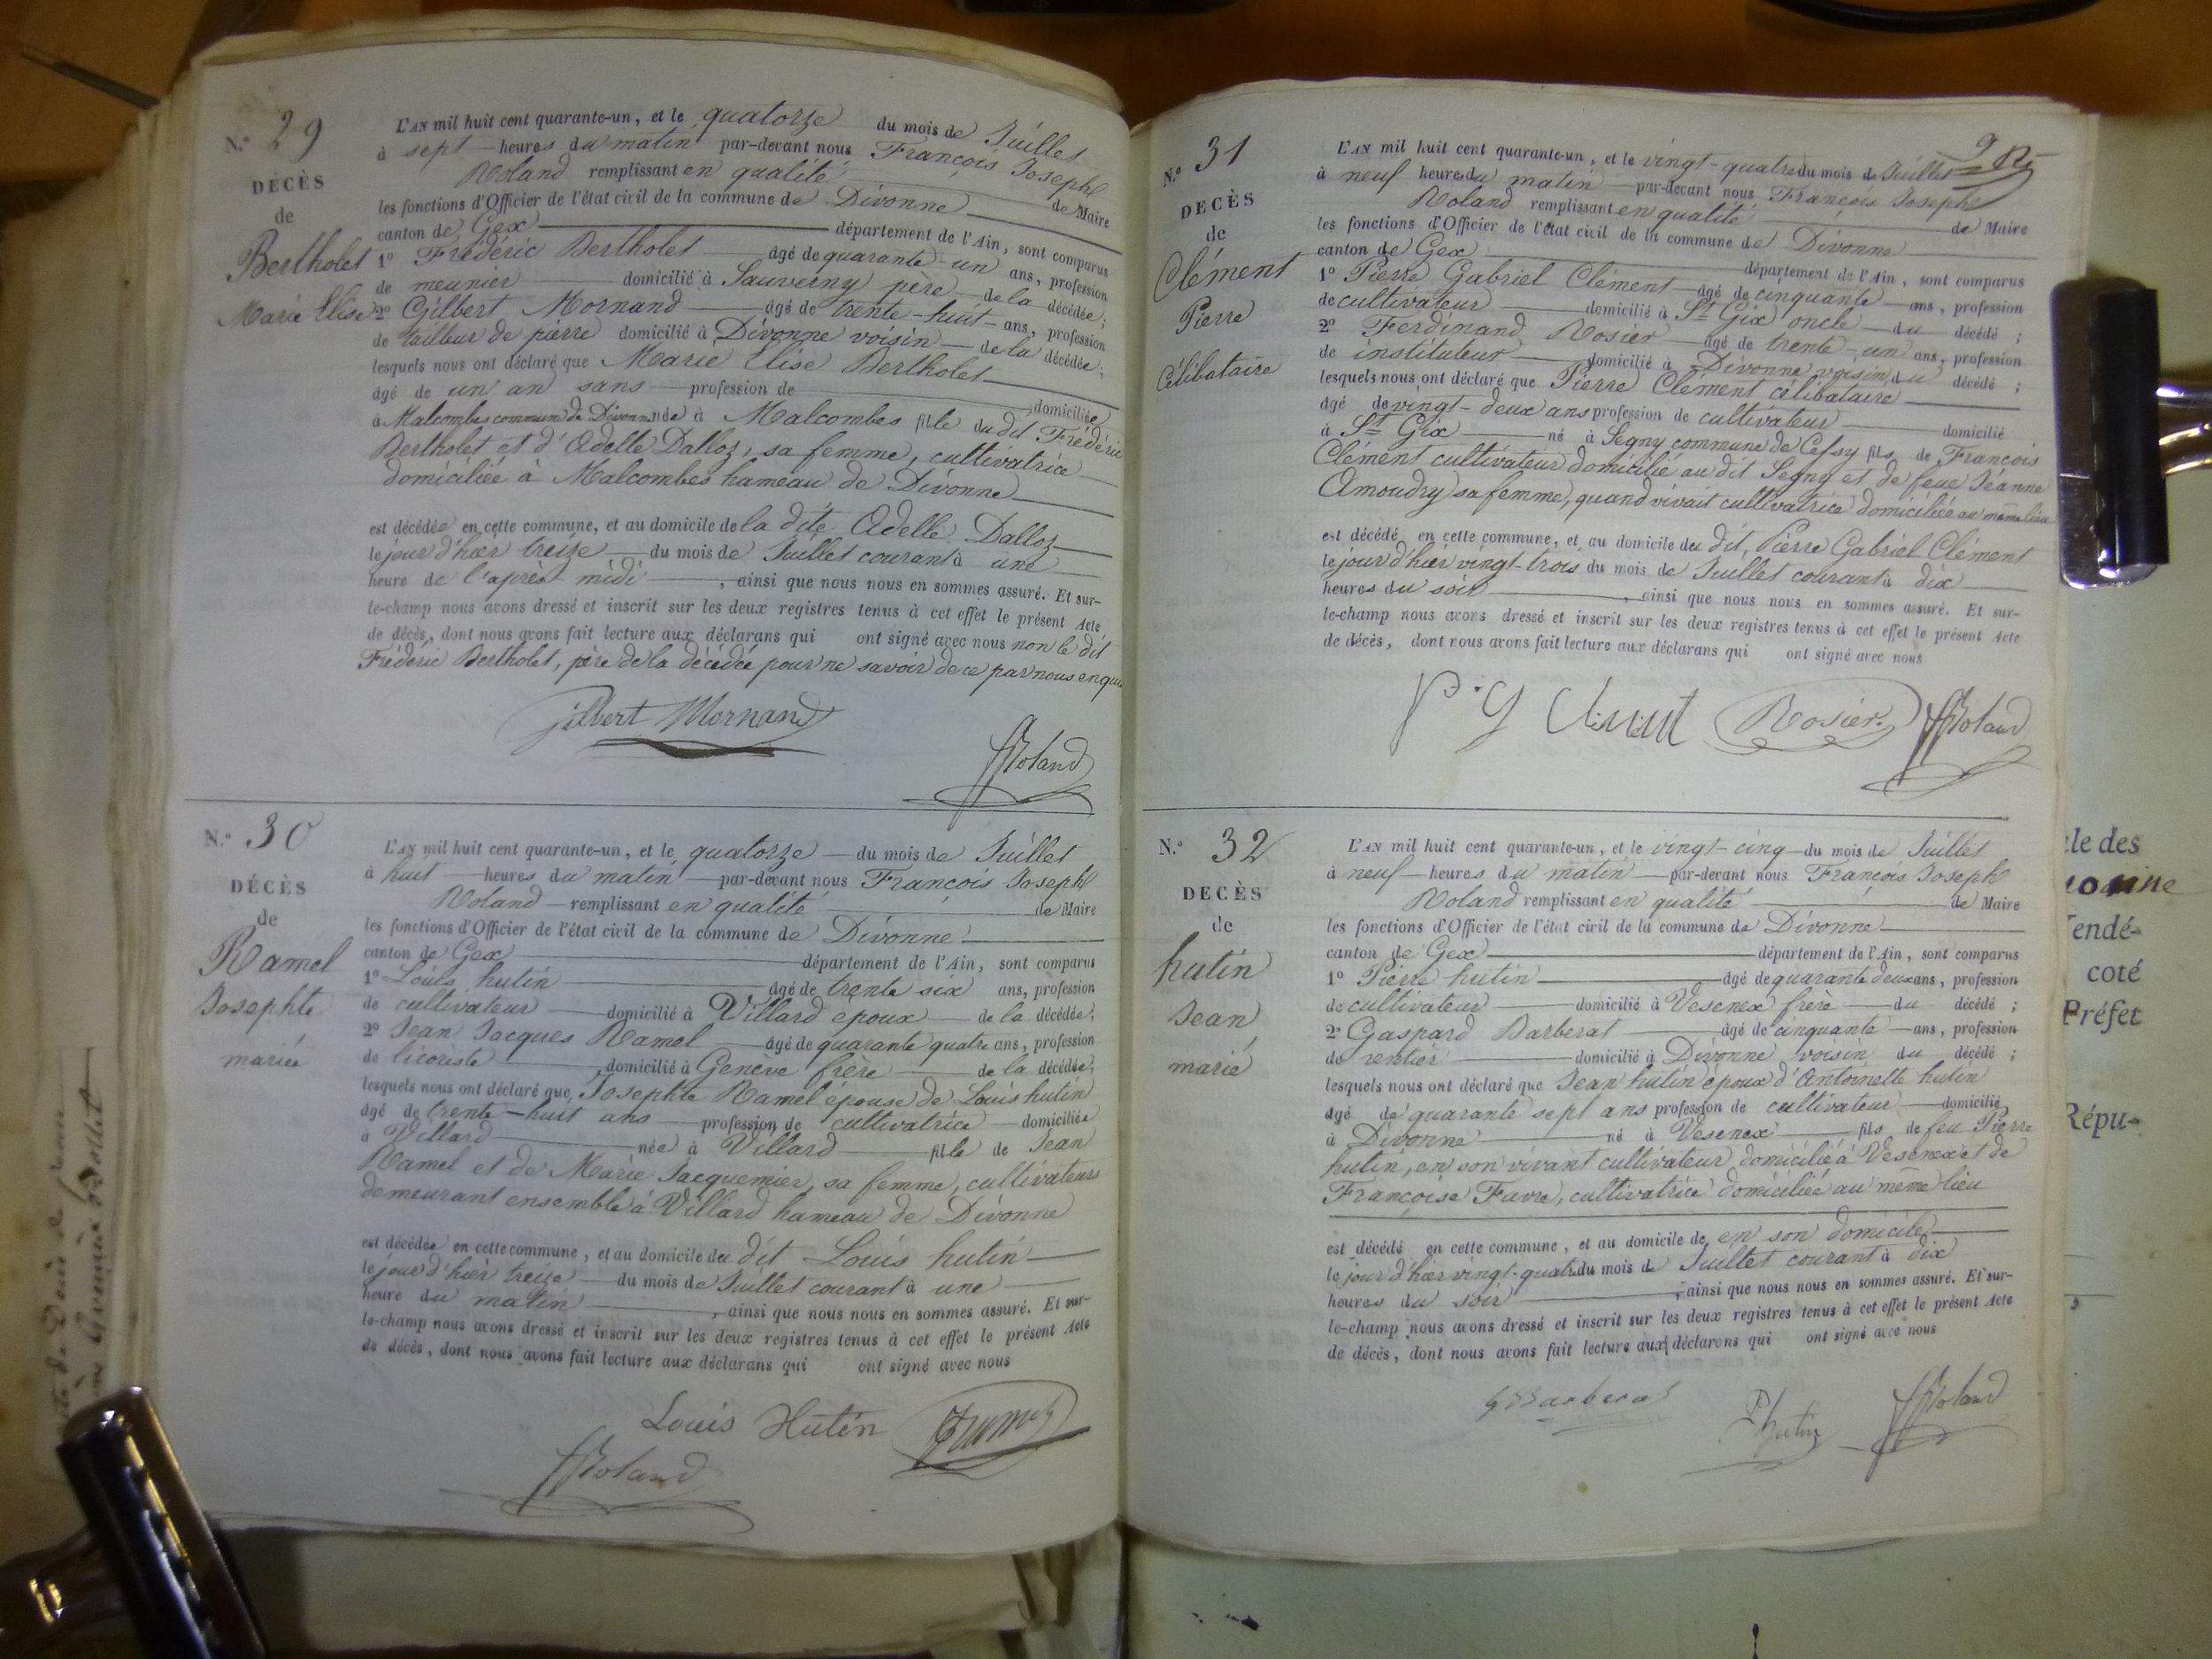 N.º 29
DÉCÈS
de
Bertholet
Marie Elise
L'AN mil huit cent quarante-un, et le quatorze du mois de Juillet
à sept heures du matin par-devant nous François Joseph
Roland remplissant en qualité de Maire
les fonctions d'Officier de l'état civil de la commune de Divonne
canton de Gex département de l'Ain, sont comparus
1º Frédéric Bertholet âgé de quarante-un ans, profession
de meunier domicilié à Sauverny père de la décédée;
2º Gilbert Mornand âgé de trente-huit ans, profession
de tailleur de pierre domicilié à Divonne voisin de la décédée;
lesquels nous ont déclaré que Marie Elise Bertholet
âgé de un an sans profession de domiciliée
à Malcombes commune de Divonne née à Malcombes fille du dit Frédéric
Bertholet et d'Adelle Dalloz, sa femme, cultivatrice
domiciliée à Malcombes hameau de Divonne
est décédée en cette commune, et au domicile de la dite Adelle Dalloz
le jour d'hier treize du mois de Juillet courant à une
heure de l'après midi, ainsi que nous nous en sommes assuré. Et sur-
le-champ nous avons dressé et inscrit sur les deux registres tenus à cet effet le présent Acte
de décès, dont nous avons fait lecture aux déclarans qui ont signé avec nous non le dit
Frédéric Bertholet, père de la décédée pour ne savoir de ce par nous enquis
Gilbert Mornand
FJRoland
N.º 30
DÉCÈS
de
Ramel
Josephte
mariée
L'AN mil huit cent quarante-un, et le quatorze du mois de Juillet
à huit heures du matin par-devant nous François Joseph
Roland remplissant en qualité de Maire
les fonctions d'Officier de l'état civil de la commune de Divonne
canton de Gex département de l'Ain, sont comparus
1º Louis hutin âgé de trente six ans, profession
de cultivateur domicilié à Villard époux de la décédée;
2º Jean Jacques Ramel âgé de quarante quatre ans, profession
de licoriste domicilié à Genève frère de la décédée;
lesquels nous ont déclaré que Josephte Ramel épouse de Louis hutin
âgé de trente-huit ans profession de cultivatrice domiciliée
à Villard née à Villard fille de Jean
Ramel et de Marie Jacquemier, sa femme, cultivateurs
demeurant ensemble à Villard hameau de Divonne
est décédée en cette commune, et au domicile du dit Louis hutin
le jour d'hier treize du mois de Juillet courant à une
heure du matin, ainsi que nous nous en sommes assuré. Et sur-
le-champ nous avons dressé et inscrit sur les deux registres tenus à cet effet le présent Acte
de décès, dont nous avons fait lecture aux déclarans qui ont signé avec nous
Louis Hutin
FJRoland
N.º 31
DECÈS
de
Clément
Pierre
Célibataire
9
L'AN mil huit cent quarante-un, et le vingt-quatre du mois de Juillet
à neuf heures du matin par-devant nous François Joseph
Roland remplissant en qualité de Maire
les fonctions d'Officier de l'état civil de la commune de Divonne
canton de Gex département de l'Ain, sont comparus
1º Pierre Gabriel Clément âgé de cinquante ans, profession
de cultivateur domicilié à St Gix oncle du décédé;
2º Ferdinand Rosier âgé de trente-un ans, profession
de instituteur domicilié à Divonne voisin du décédé;
lesquels nous ont déclaré que Pierre Clément célibataire
âgé de vingt-deux ans profession de cultivateur domicilié
à St Gix né à Segny commune de Cessy fils de François
Clément cultivateur domicilié au dit Segny et de feue Jeanne
Amoudry sa femme, quand vivait cultivatrice domiciliée au même lieu
est décédé en cette commune, et au domicile du dit Pierre Gabriel Clément
le jour d'hier vingt-trois du mois de Juillet courant à dix
heures du soir, ainsi que nous nous en sommes assuré. Et sur-
le-champ nous avons dressé et inscrit sur les deux registres tenus à cet effet le présent Acte
de décès, dont nous avons fait lecture aux déclarans qui ont signé avec nous
P. G Clément Rosier FJRoland
N.º 32
DECÈS
de
hutin
Jean
marié
L'AN mil huit cent quarante-un, et le vingt-cinq du mois de Juillet
à neuf heures du matin par-devant nous François Joseph
Roland remplissant en qualité de Maire
les fonctions d'Officier de l'état civil de la commune de Divonne
canton de Gex département de l'Ain, sont comparus
1º Pierre hutin âgé de quarante deux ans, profession
de cultivateur domicilié à Vesenex frère du décédé;
2º Gaspard Barberat âgé de cinquante ans, profession
de rentier domicilié à Divonne voisin du décédé;
lesquels nous ont déclaré que Jean hutin époux d'Antoinette hutin
âgé de quarante sept ans profession de cultivateur domicilié
à Divonne né à Vesenex fils de feu Pierre
hutin, en son vivant cultivateur domicilié à Vesenex et de
Françoise Favre, cultivatrice domiciliée au même lieu
est décédé en cette commune, et au domicile de en son domicile
le jour d'hier vingt-quatre du mois de Juillet courant à dix
heures du soir, ainsi que nous nous en sommes assuré. Et sur-
le-champ nous avons dressé et inscrit sur les deux registres tenus à cet effet le présent Acte
de décès, dont nous avons fait lecture aux déclarans qui ont signé avec nous
GBarberat P hutin FJRoland
cle des
endé-
coté
Préfet
Répu-